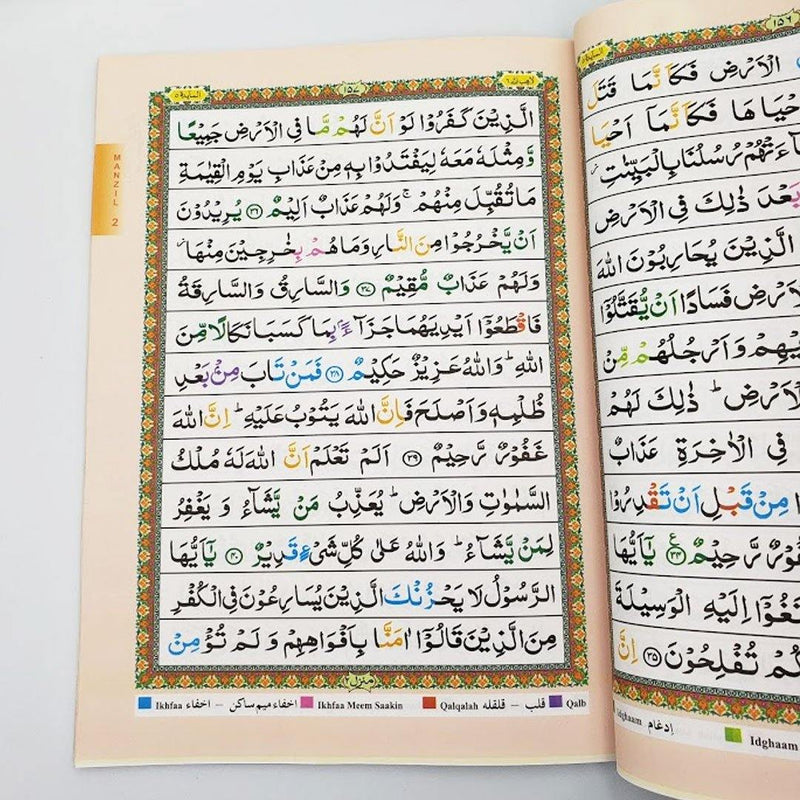 المآئدة ٥
١٥٧
لا يحب الله ٦
الَّذِيْنَ كَفَرُوْا لَوْ اَنَّ لَهُمْ مَّا فِى الْاَرْضِ جَمِيْعًا
وَّمِثْلَهٗ مَعَهٗ لِيَفْتَدُوْا بِهٖ مِنْ عَذَابِ يَوْمِ الْقِيٰمَةِ
مَا تُقُبِّلَ مِنْهُمْ ۚ وَلَهُمْ عَذَابٌ اَلِيْمٌ ۝٣٦ يُرِيْدُوْنَ
اَنْ يَّخْرُجُوْا مِنَ النَّارِ وَمَا هُمْ بِخٰرِجِيْنَ مِنْهَا ۡ
وَلَهُمْ عَذَابٌ مُّقِيْمٌ ۝٣٧ وَالسَّارِقُ وَالسَّارِقَةُ
فَاقْطَعُوْۤا اَيْدِيَهُمَا جَزَآءًۢ بِمَا كَسَبَا نَكَالًا مِّنَ
اللّٰهِ ؕ وَاللّٰهُ عَزِيْزٌ حَكِيْمٌ ۝٣٨ فَمَنْ تَابَ مِنْۢ بَعْدِ
ظُلْمِهٖ وَاَصْلَحَ فَاِنَّ اللّٰهَ يَتُوْبُ عَلَيْهِ ؕ اِنَّ اللّٰهَ
غَفُوْرٌ رَّحِيْمٌ ۝٣٩ اَلَمْ تَعْلَمْ اَنَّ اللّٰهَ لَهٗ مُلْكُ
السَّمٰوٰتِ وَالْاَرْضِ ؕ يُعَذِّبُ مَنْ يَّشَآءُ وَ يَغْفِرُ
لِمَنْ يَّشَآءُ ؕ وَاللّٰهُ عَلٰى كُلِّ شَىْءٍ قَدِيْرٌ ۝٤٠ يٰۤاَيُّهَا
الرَّسُوْلُ لَا يَحْزُنْكَ الَّذِيْنَ يُسَارِعُوْنَ فِى الْكُفْرِ
مِنَ الَّذِيْنَ قَالُوْۤا اٰمَنَّا بِاَفْوَاهِهِمْ وَ لَمْ تُؤْمِنْ
منزل ٢
MANZIL 2
Ikhfaa اخفاء – Ikhfaa Meem Saakin اخفاء ميم ساكن – Qalqalah قلقله – Qalb قلب
١٥٦
المآئدة ٥
الْاَرْضِ فَكَاَنَّمَا قَتَلَ
اَحْيَاهَا فَكَاَنَّمَاۤ اَحْيَا
جَآءَتْهُمْ رُسُلُنَا بِالْبَيِّنٰتِ
بَعْدَ ذٰلِكَ فِى الْاَرْضِ
الَّذِيْنَ يُحَارِبُوْنَ اللّٰهَ
الْاَرْضِ فَسَادًا اَنْ يُّقَتَّلُوْۤا
اَيْدِيْهِمْ وَاَرْجُلُهُمْ مِّنْ
الْاَرْضِ ؕ ذٰلِكَ لَهُمْ
فِى الْاٰخِرَةِ عَذَابٌ
مِنْ قَبْلِ اَنْ تَقْدِرُوْا
غَفُوْرٌ رَّحِيْمٌ ۝٣٤ يٰۤاَيُّهَا
وَابْتَغُوْۤا اِلَيْهِ الْوَسِيْلَةَ
لَعَلَّكُمْ تُفْلِحُوْنَ ۝٣٥ اِنَّ
Idghaam ادغام
Idghaam